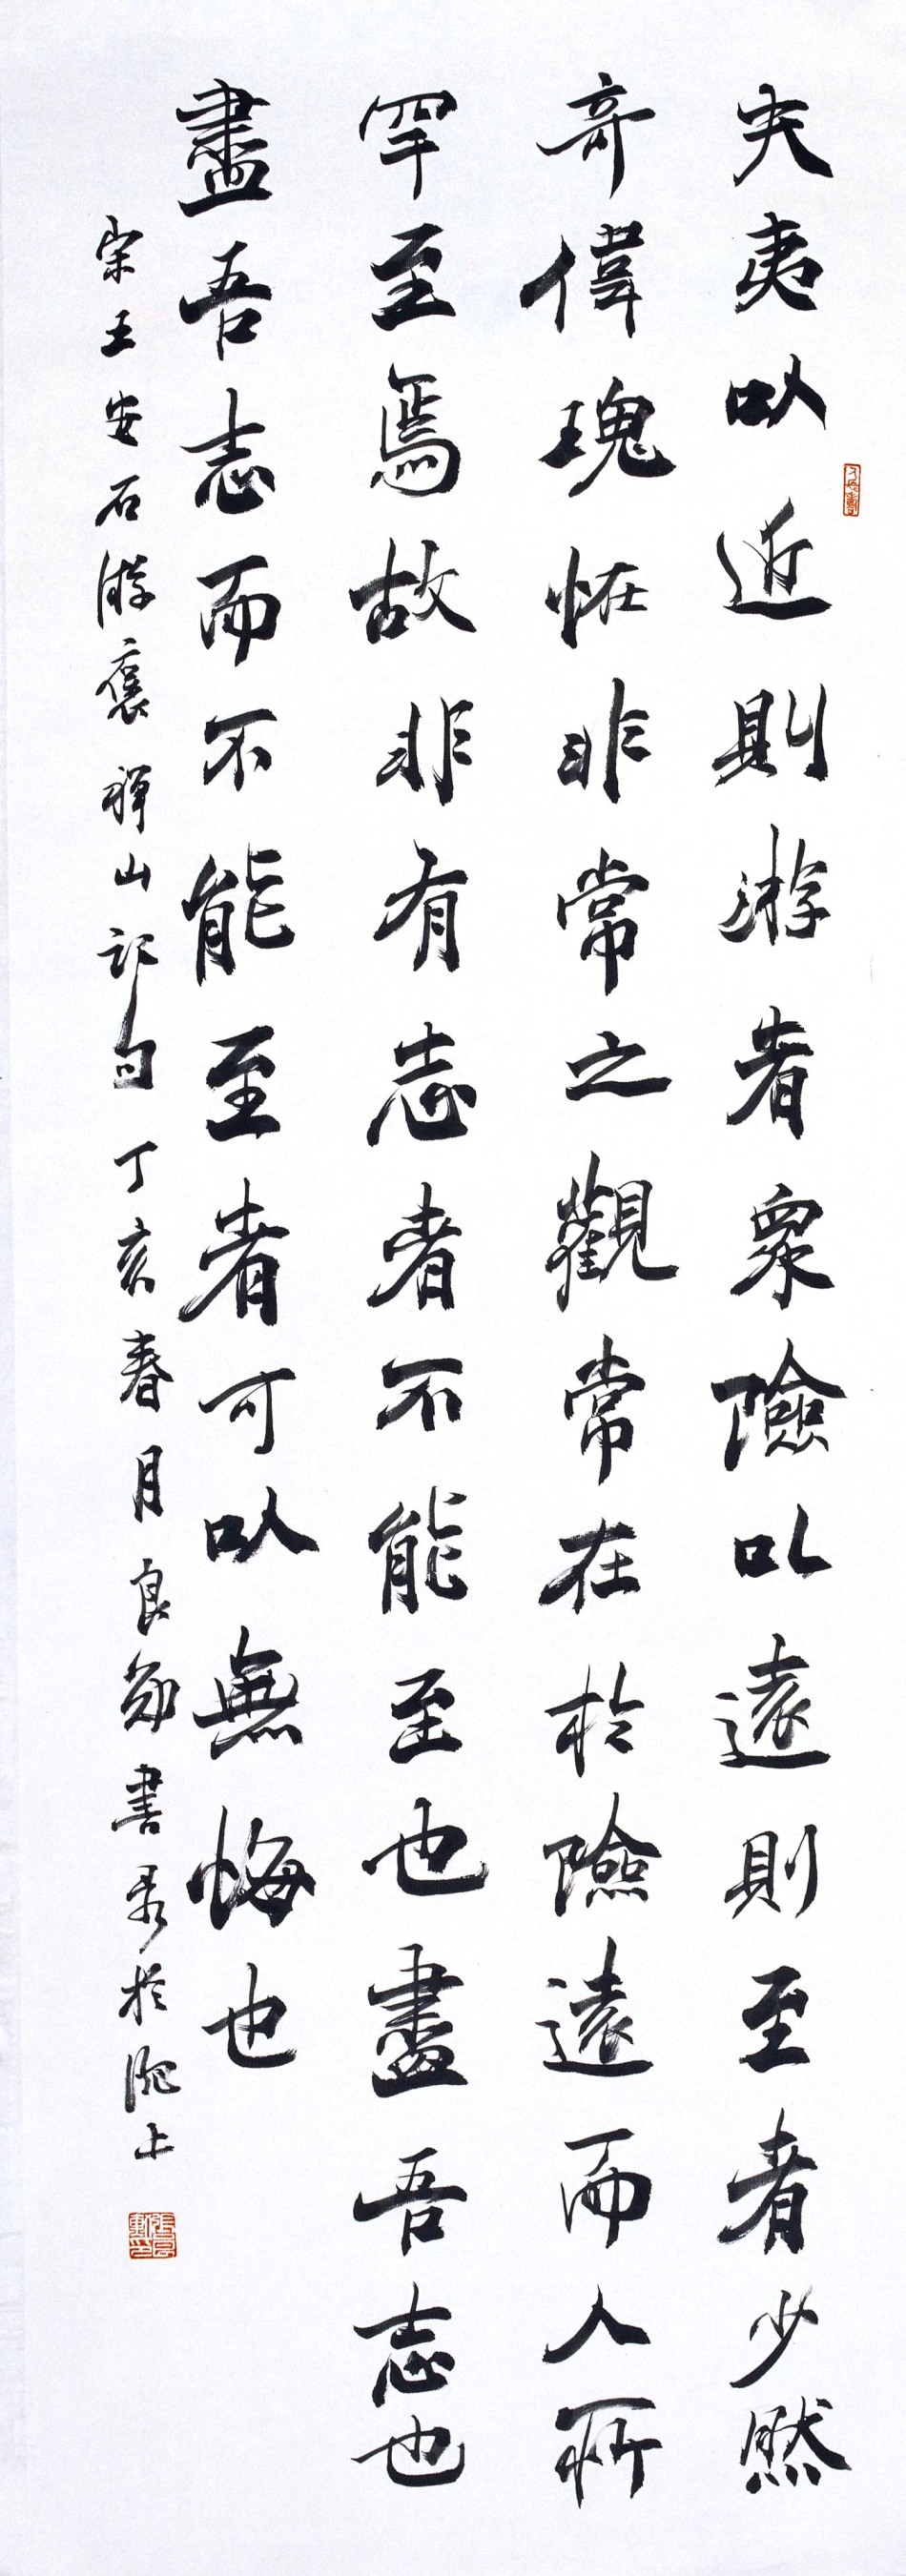 夫夷以近則游者衆險以遠則至者少然
奇偉瑰怪非常之觀常在於險遠而人所
罕至焉故非有志者不能至也盡吾志也
盡吾志而不能至者可以無悔也
宋王安石游褒禪山記句丁亥春月良勛書录於滬上